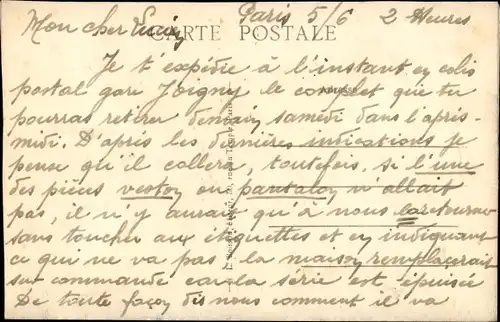 Paris 5/6 2 Heures
Mon cher
CARTE POSTALE
Je t'expédie à l'instant en colis
postal gare Joigny le complet que tu
pourras retirer demain samedi dans l'après-
midi. D'après les dernières indications je
pense qu'il collera, toutefois, si l'une
des pièces veston ou pantalon n'allait
pas, il n'y aurait qu'à nous la retourner
sans toucher aux étiquettes et en indiquant
ce qui ne va pas la maison remplacerait
sur commande car la série est épuisée
De toute façon dis nous comment il va